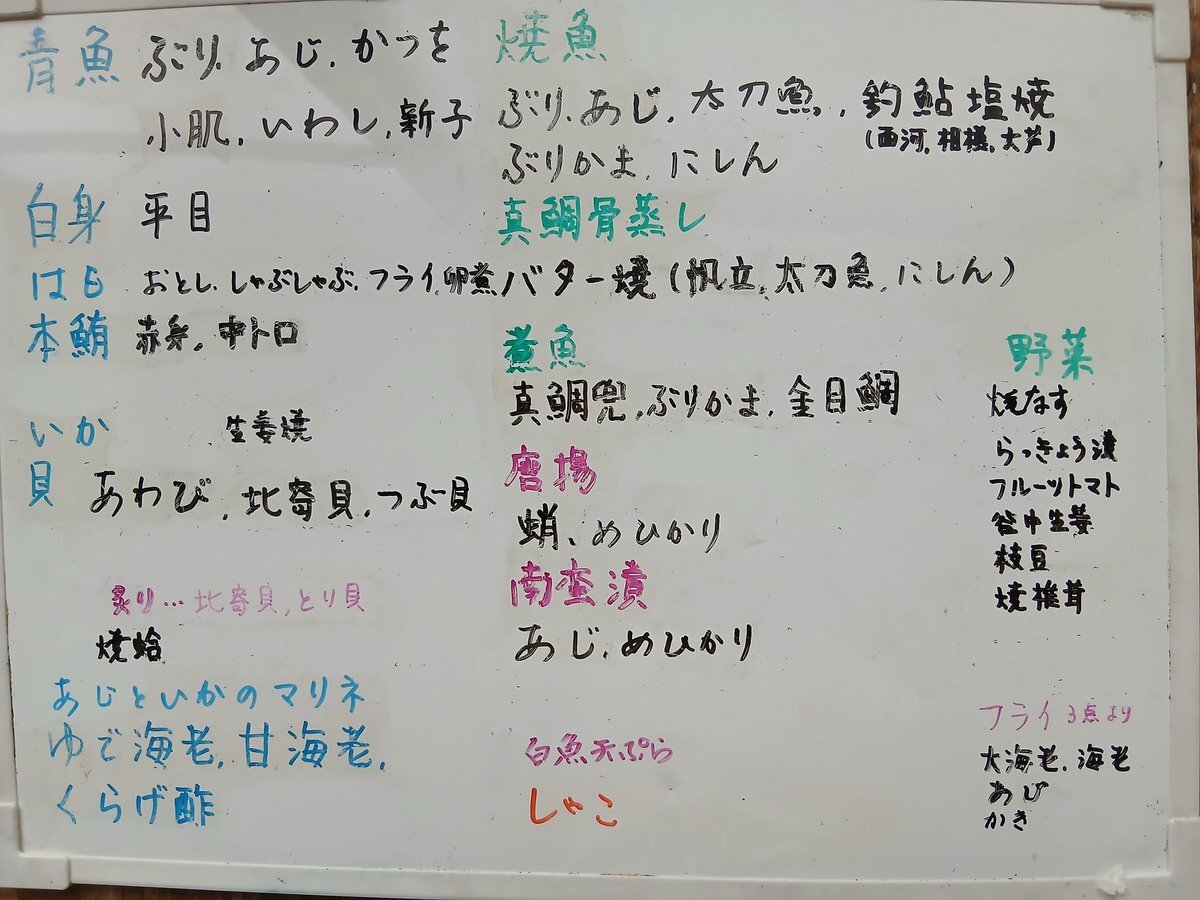 青魚 ぶり、あじ、かつを
小肌、いわし、新子
白身 平目
はも おとし、しゃぶしゃぶ、フライ、卵煮
本鮪 赤身、中トロ
いか 生姜焼
貝 あわび、北寄貝、つぶ貝
炙り…北寄貝、とり貝
焼蛤
あじといかのマリネ
ゆで海老、甘海老、
くらげ酢
焼魚
ぶり、あじ、太刀魚、釣鮎塩焼
(西河、相模、大芦)
ぶりかま、にしん
真鯛骨蒸し
バター焼(帆立、太刀魚、にしん)
煮魚
真鯛兜、ぶりかま、金目鯛
唐揚
蛸、めひかり
南蛮漬
あじ、めひかり
白魚天ぷら
しゃこ
野菜
焼なす
らっきょう漬
フルーツトマト
谷中生姜
枝豆
焼椎茸
フライ 3点より
大海老、海老
あじ
かき